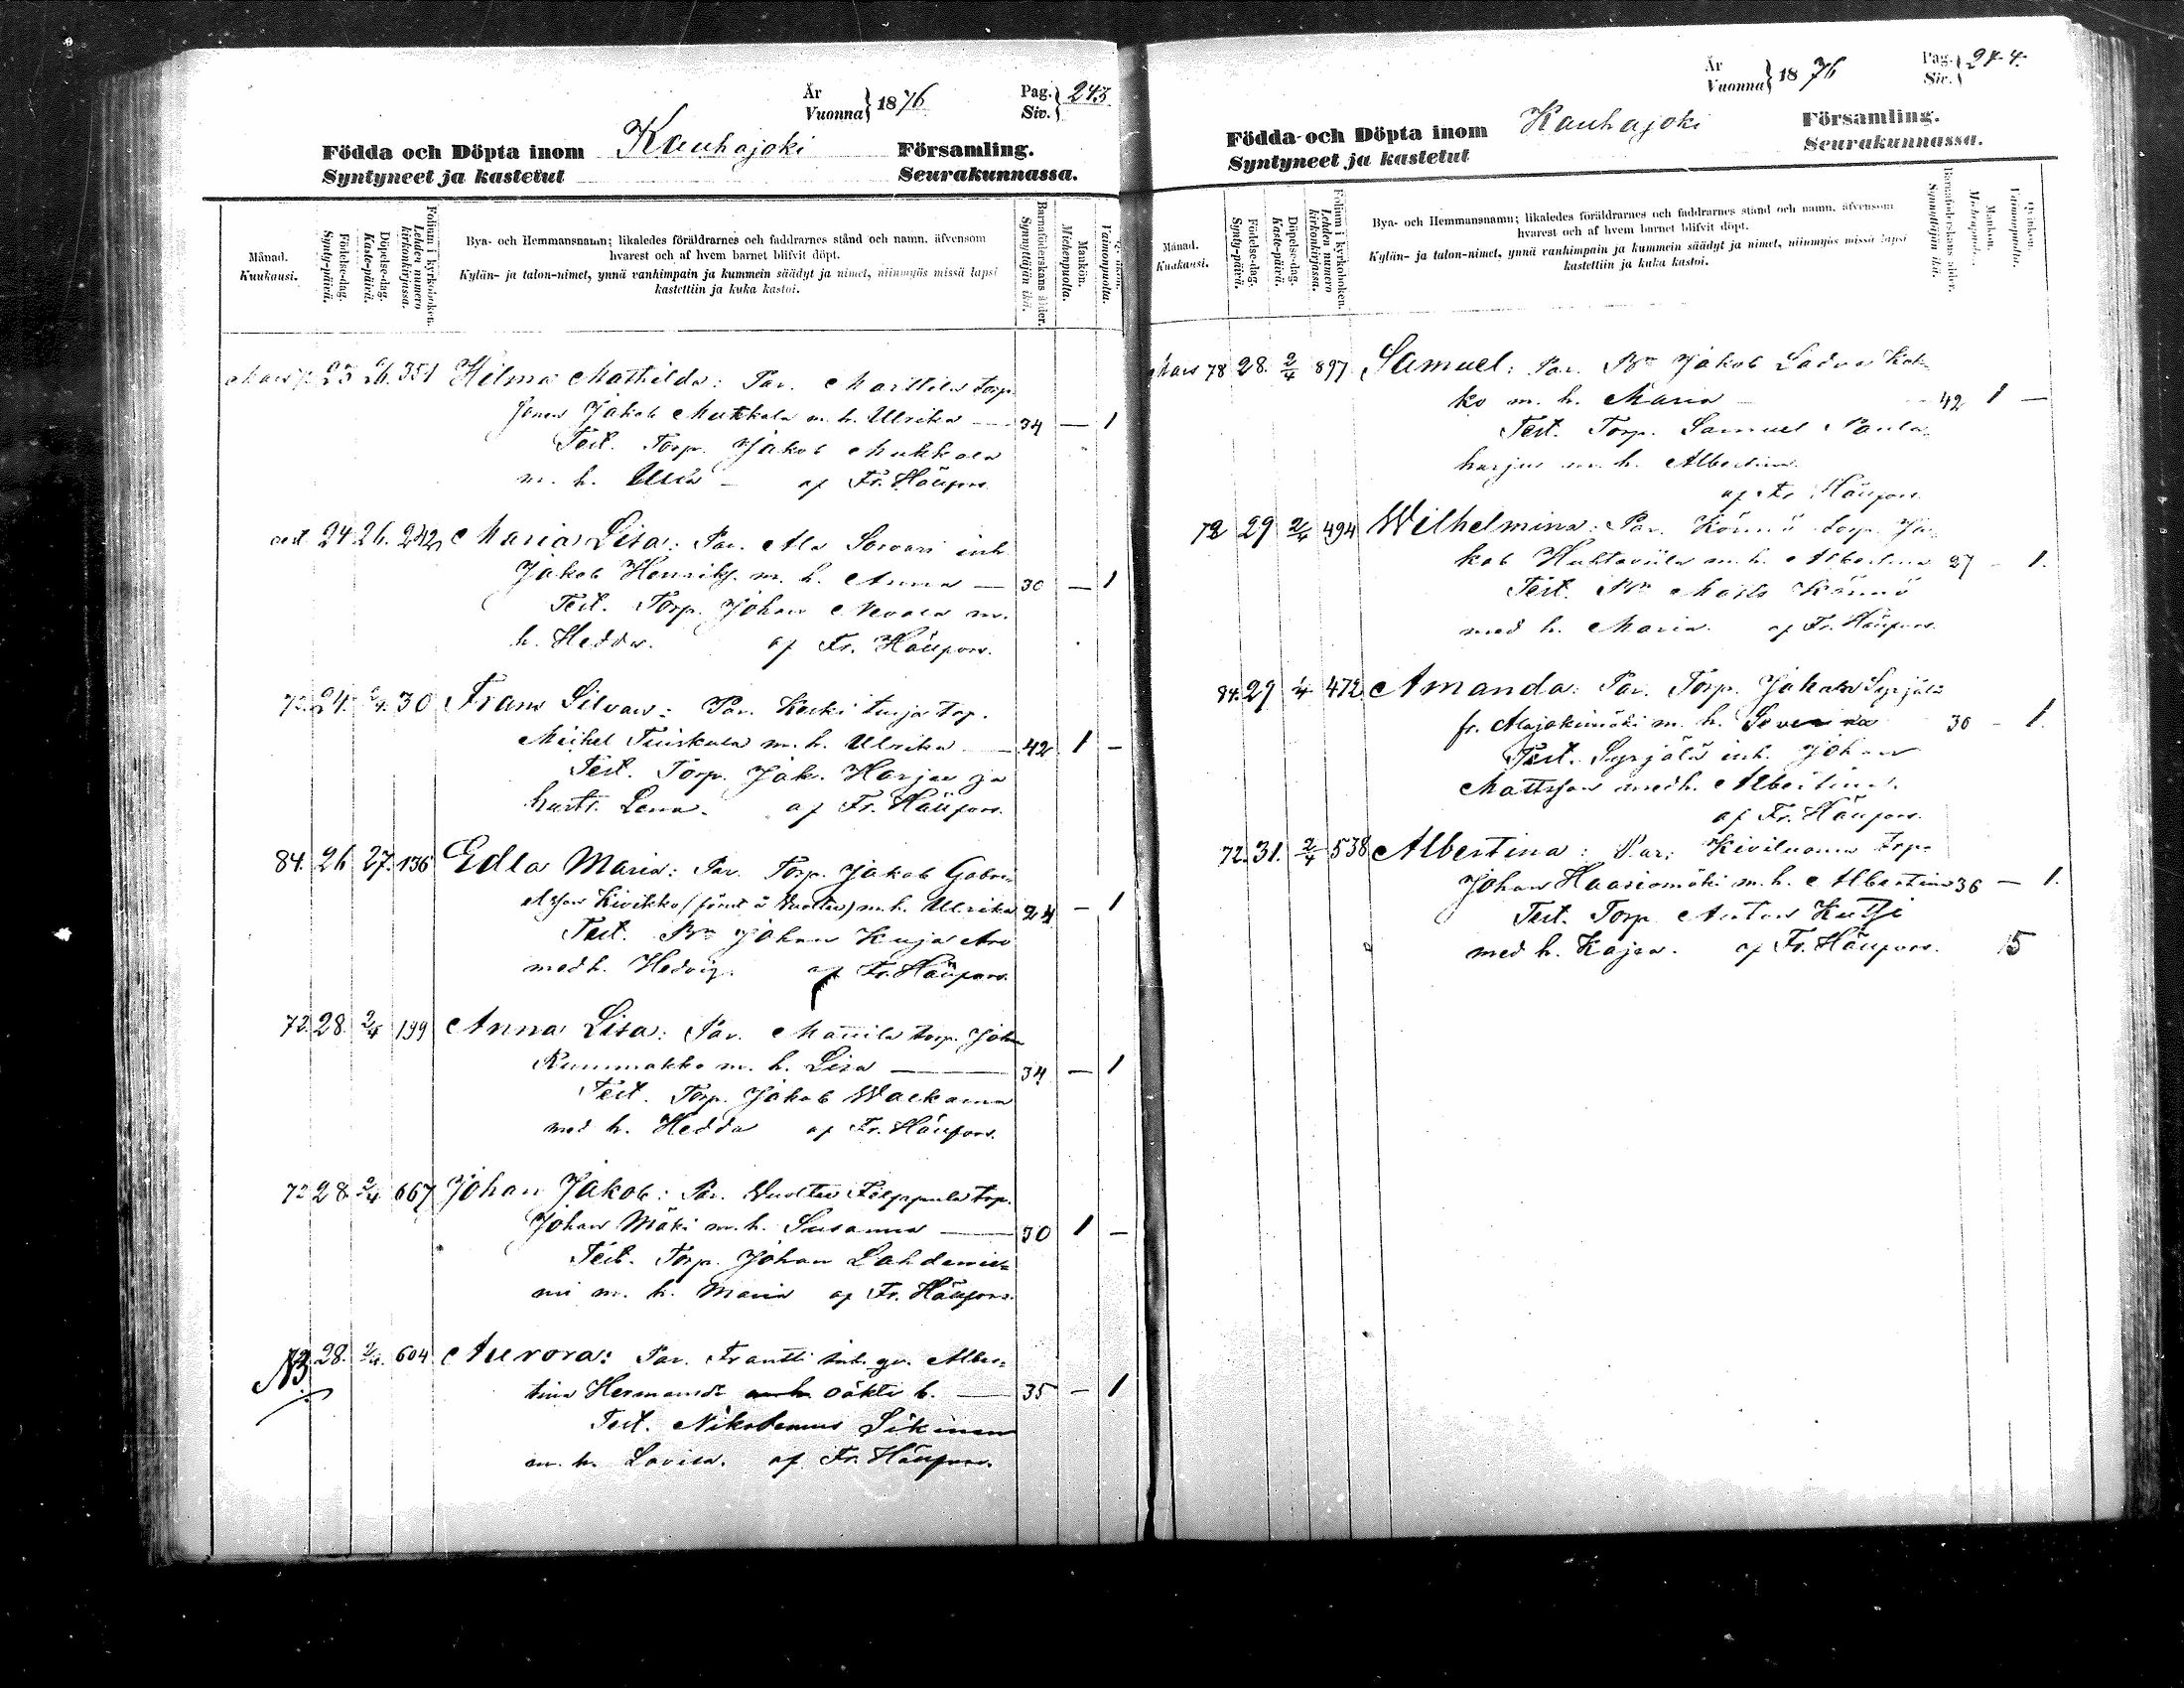 År
Vuonna } 1876
Pag.
Siv. } 243
Födda och Döpta inom Kauhajoki Församling.
Syntyneet ja kastetut Seurakunnassa.
Månad.
Kuukausi.
Födelse-dag.
Synty-päivä.
Döpelse-dag.
Kaste-päivä.
Folium i kyrkoboken.
Lehden numero kirkonkirjassa.
Bya- och Hemmansnamn; likaledes föräldrarnes och faddrarnes stånd och namn, äfvensom
hvarest och af hvem barnet blifvit döpt.
Kylän- ja talon-nimet, ynnä vanhimpain ja kummein säädyt ja nimet, niinmyös missä lapsi
kastettiin ja kuka kastoi.
Barnaföderskans ålder.
Synnyttäjän ikä.
Mankön.
Miehenpuolta.
Qvinkön.
Vaimonpuolta.
Mars 23 26. 351 Hilma Mathilda: Par. Marttila torp.
Jakob Mukkala m. h. Ulrika — 34 — 1
Test. Torp. Jakob Mukkala
m. h. Ulla — af Fr. Häupors.
24 26. 242 Maria Lisa: Par. Ala Sorvari inh.
Jakob Henriks. m. h. Anna — 30 — 1
Test. Torp. Johan Nevala m.
h. Hedda. af Fr. Häupors.
72. 24. 2/4. 30 Frans Silvan: Par. Keski turja torp.
Michel Tuiskula m. h. Ulrika — 42 1 —
Test. Torp. Jak. Harja ja
hustr. Lena. af Fr. Häupors.
84. 26 27. 136 Edla Maria: Par. Torp. Jakob Gabri-
elsson Kivikko m. h. Ulrika 24 — 1
Test. Bn Johan Kuja Aro
med h. Hedvig. af Fr. Häupors.
72. 28. 2/4 199 Anna Lisa: Par. Mannila torp. Joh.
Rummakko m. h. Lisa — 34 — 1
Test. Torp. Jakob Wackama
med h. Hedda af Fr. Häupors.
72 28 2/4 667 Johan Jakob: Par. Filppula torp.
Johan Mäki m. h. Susanna — 30 1 —
Test. Torp. Johan Lahdenie-
mi m. h. Maria af Fr. Häupors.
28. 2/4. 604 Aurora: Par. Frantti inh. qv. Alber-
tina Hermansdr oäkta b. — 35 — 1
Test. Nikodemus Sikinen
m. h. Lovisa. af Fr. Häupors.
År
Vuonna } 1876
Pag.
Siv. } 244
Födda och Döpta inom Kauhajoki Församling.
Syntyneet ja kastetut Seurakunnassa.
Månad.
Kuukausi.
Födelse-dag.
Synty-päivä.
Döpelse-dag.
Kaste-päivä.
Folium i kyrkoboken.
Lehden numero kirkonkirjassa.
Bya- och Hemmansnamn; likaledes föräldrarnes och faddrarnes stånd och namn, äfvensom
hvarest och af hvem barnet blifvit döpt.
Kylän- ja talon-nimet, ynnä vanhimpain ja kummein säädyt ja nimet, niinmyös missä lapsi
kastettiin ja kuka kastoi.
Barnaföderskans ålder.
Synnyttäjän ikä.
Mankön.
Miehenpuolta.
Qvinkön.
Vaimonpuolta.
Mars 78 28. 2/4 897 Samuel: Par. Bn Jakob Ladva Kok-
ko m. h. Maria — 42 1 —
Test. Torp. Samuel Paula-
harju m. h. Albertina.
af Fr. Häupors.
72 29 2/4 494 Wilhelmina: Par. Könnö torp. Ja-
kob Huhtaviila m. h. Albertina 27 — 1.
Test. Bn Matts Könnö
med h. Maria. af Fr. Häupors.
84. 29 1/4 472 Amanda: Par. Torp. Johan Syrjälä
fr. Alajokimäki m. h. Soverna 30 — 1.
Test. Syrjälä inh. Johan
Mattsson med h. Albertina.
af Fr. Häupors.
72. 31. 2/4 538 Albertina: Par: Kiviluoma torp.
Johan Haasiomäki m. h. Albertina 36 — 1.
Test. Torp Anton
med h. Kajsa. af Fr. Häupors. 15